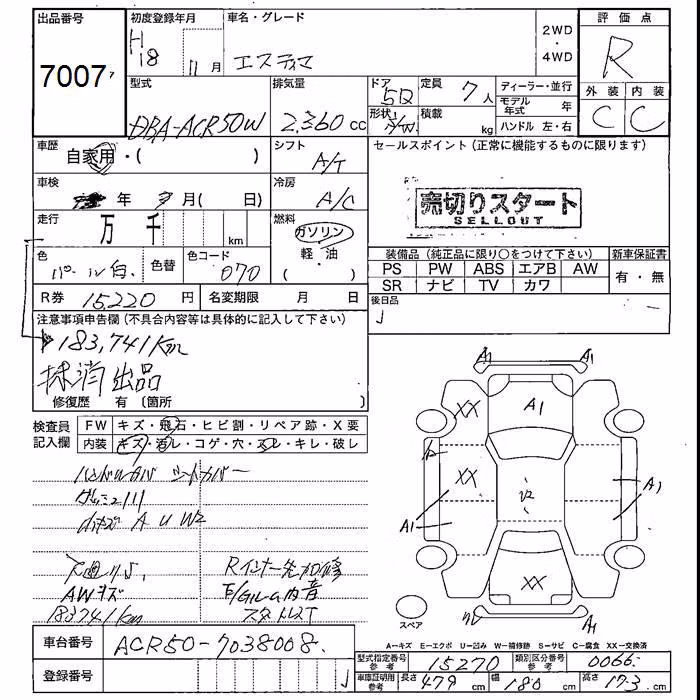 出品番号 初度登録年月 車名・グレード 2WD・4WD 評価点
7007 H18 11月 エスティマ R
型式 排気量 ドア 5D 定員 7人 ディーラー・並行 外装 内装
DBA-ACR50W 2.360cc 形状 S/W 積載 kg モデル年式 年 C C
ハンドル 左・右
車歴 自家用・( ) シフト A/T セールスポイント(正常に機能するものに限ります)
車検 年 月( 日) 冷房 A/C
売切りスタート
SELLOUT
走行 万 千 km 燃料 ガソリン 軽・油
色 パール白 色替 色コード 070
装備品(純正品に限り○をつけて下さい) 新車保証書
PS PW ABS エアB AW 有・無
SR ナビ TV カワ
R券 15220円 名変期限 月 日 後日品
注意事項申告欄(不具合内容等は具体的に記入して下さい)
183,741Km
抹消出品
修復歴 有〔箇所 〕
検査員記入欄 FW キズ・飛石・ヒビ割・リペア跡・X要
内装 キズ・汚レ・コゲ・穴・スレ・キレ・破レ
ハンドルカバー シートカバー
A U W2
下廻りS. Rインナー先加修
AWキズ E/Gルーム内音
183741Km スタットレスT
A1 A1
XX A1
XX
A1 A1
XX
A1
スペア
A=キズ E=エクボ U=凹み W=補修跡 S=サビ C=腐食 XX=交換済
車台番号 ACR50-7038008
型式指定番号 参考 15270 類別区分番号 参考 0066
登録番号 車庫証明用 参考 長さ 479cm 幅 180cm 高さ 173cm